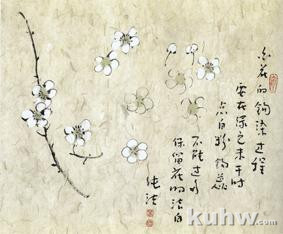 白花的钩染过程
要在绿色未干时
点白粉钩蕊
不能过多
保留花的洁白
kuhw.com